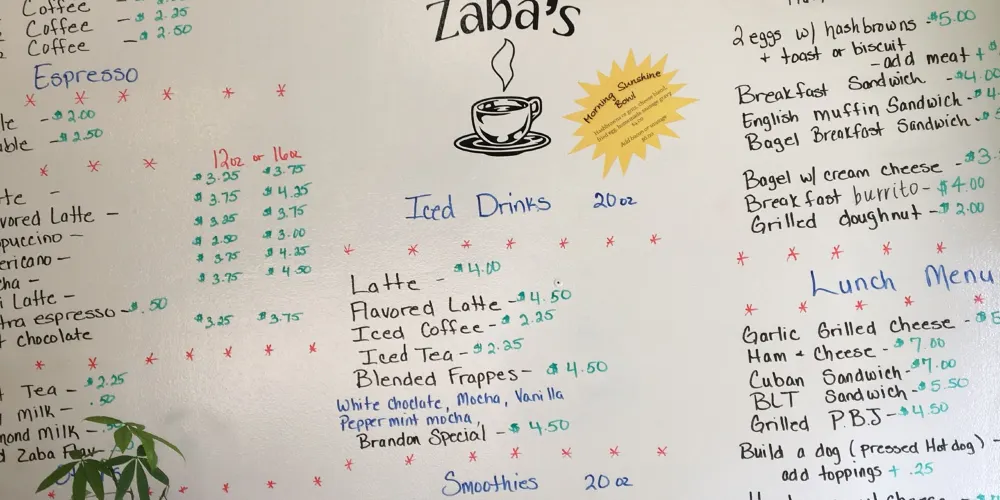 Coffee
Coffee - $ 2.25
Coffee - $ 2.50
Espresso
- $2.00
- $2.50
12oz or 16oz
- $3.25 $3.75
Latte - $3.75 $4.25
- $3.25 $3.75
- $2.50 $3.00
- $3.75 $4.25
Latte - $3.75 $4.50
espresso - $.50
chocolate $3.25 $3.75
Tea - $2.25
milk - .50
milk -
Zaba
Zaba's
Morning Sunshine
Bowl
Iced Drinks 20oz
Latte - $4.00
Flavored Latte - $4.50
Iced Coffee - $2.25
Iced Tea - $2.25
Blended Frappes - $4.50
White choclate, Mocha, Vanilla
Peppermint mocha,
Brandon Special - $4.50
Smoothies 20oz
2 eggs w/ hashbrowns - $5.00
+ toast or biscuit
- add meat +
Breakfast Sandwich - $4.00
English muffin Sandwich -
Bagel Breakfast Sandwich -
Bagel w/ cream cheese -
Breakfast burrito - $4.00
Grilled doughnut - $2.00
Lunch Menu
Garlic Grilled Cheese -
Ham + Cheese - $7.00
Cuban Sandwich - $7.00
BLT Sandwich - $5.50
Grilled P.B.J - $4.50
Build a dog (pressed Hot dog) -
add toppings + .25